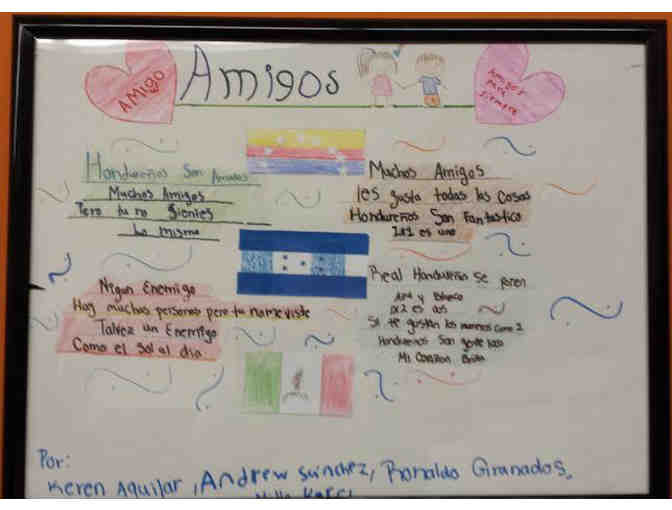 AMIGO
Amigos
Amigos
para
siempre
Hondureños Son Amados
Muchos Amigos
Pero tu no Sientes
Lo mismo
Muchos Amigos
les gusta todas las Cosas
Hondureños Son Fantastico
1x1 es uno
Nigun Enemigo
Hay muchas personas pero tu nome viste
Talvez un Enemigo
Como el Sol al dia
Real Hondureño Se
Azul y Blanco
1x2 es dos
Si te gustan los
Hondureños Son gente
Mi Corazon
Por:
Keren Aquilar, Andrew Sánchez, Ronaldo Granados,